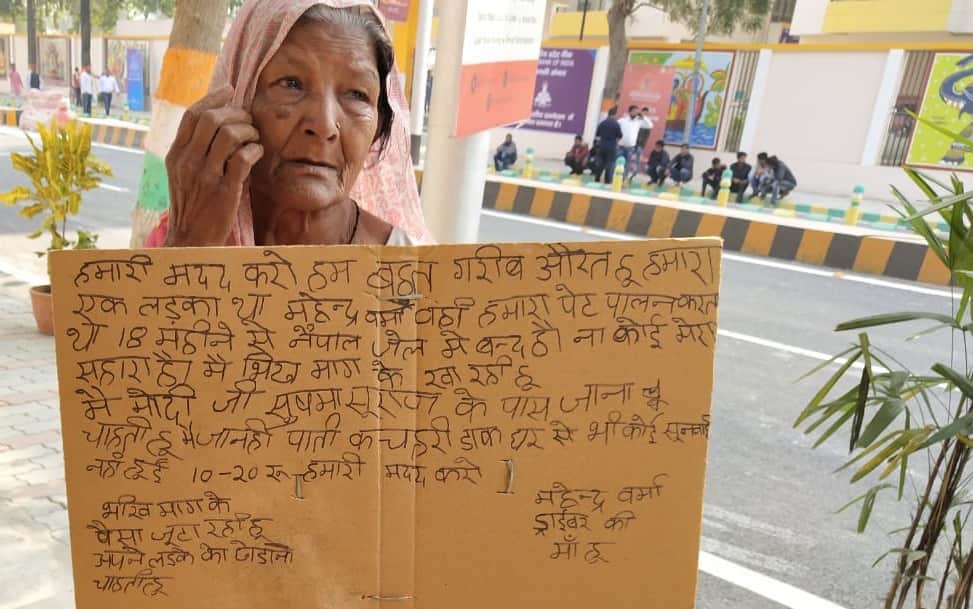 हमारी मदद करो हम बहुत गरीब औरत हू हमारा
एक लड़का था महेन्द्र वर्मा वही हमारा पेट पालन करता
था 18 महीने से नेपाल जेल मे बन्द है। ना कोई मेरा
सहारा है। मै भिख माग के खा रही हू
मै मोदी जी सुषमा स्वराज के पास जाना
चाहती हू मै जा नही पाती कचहरी डाक घर से भी कोई सुनवाई
नही हुई 10-20 रू हमारी मदद करे
भीख माग के
पैसा जूटा रही हू
अपने लड़के को छोडाने
चाहती हू
महेन्द्र वर्मा
ड्राईवर की
माँ हू
BANK OF INDIA